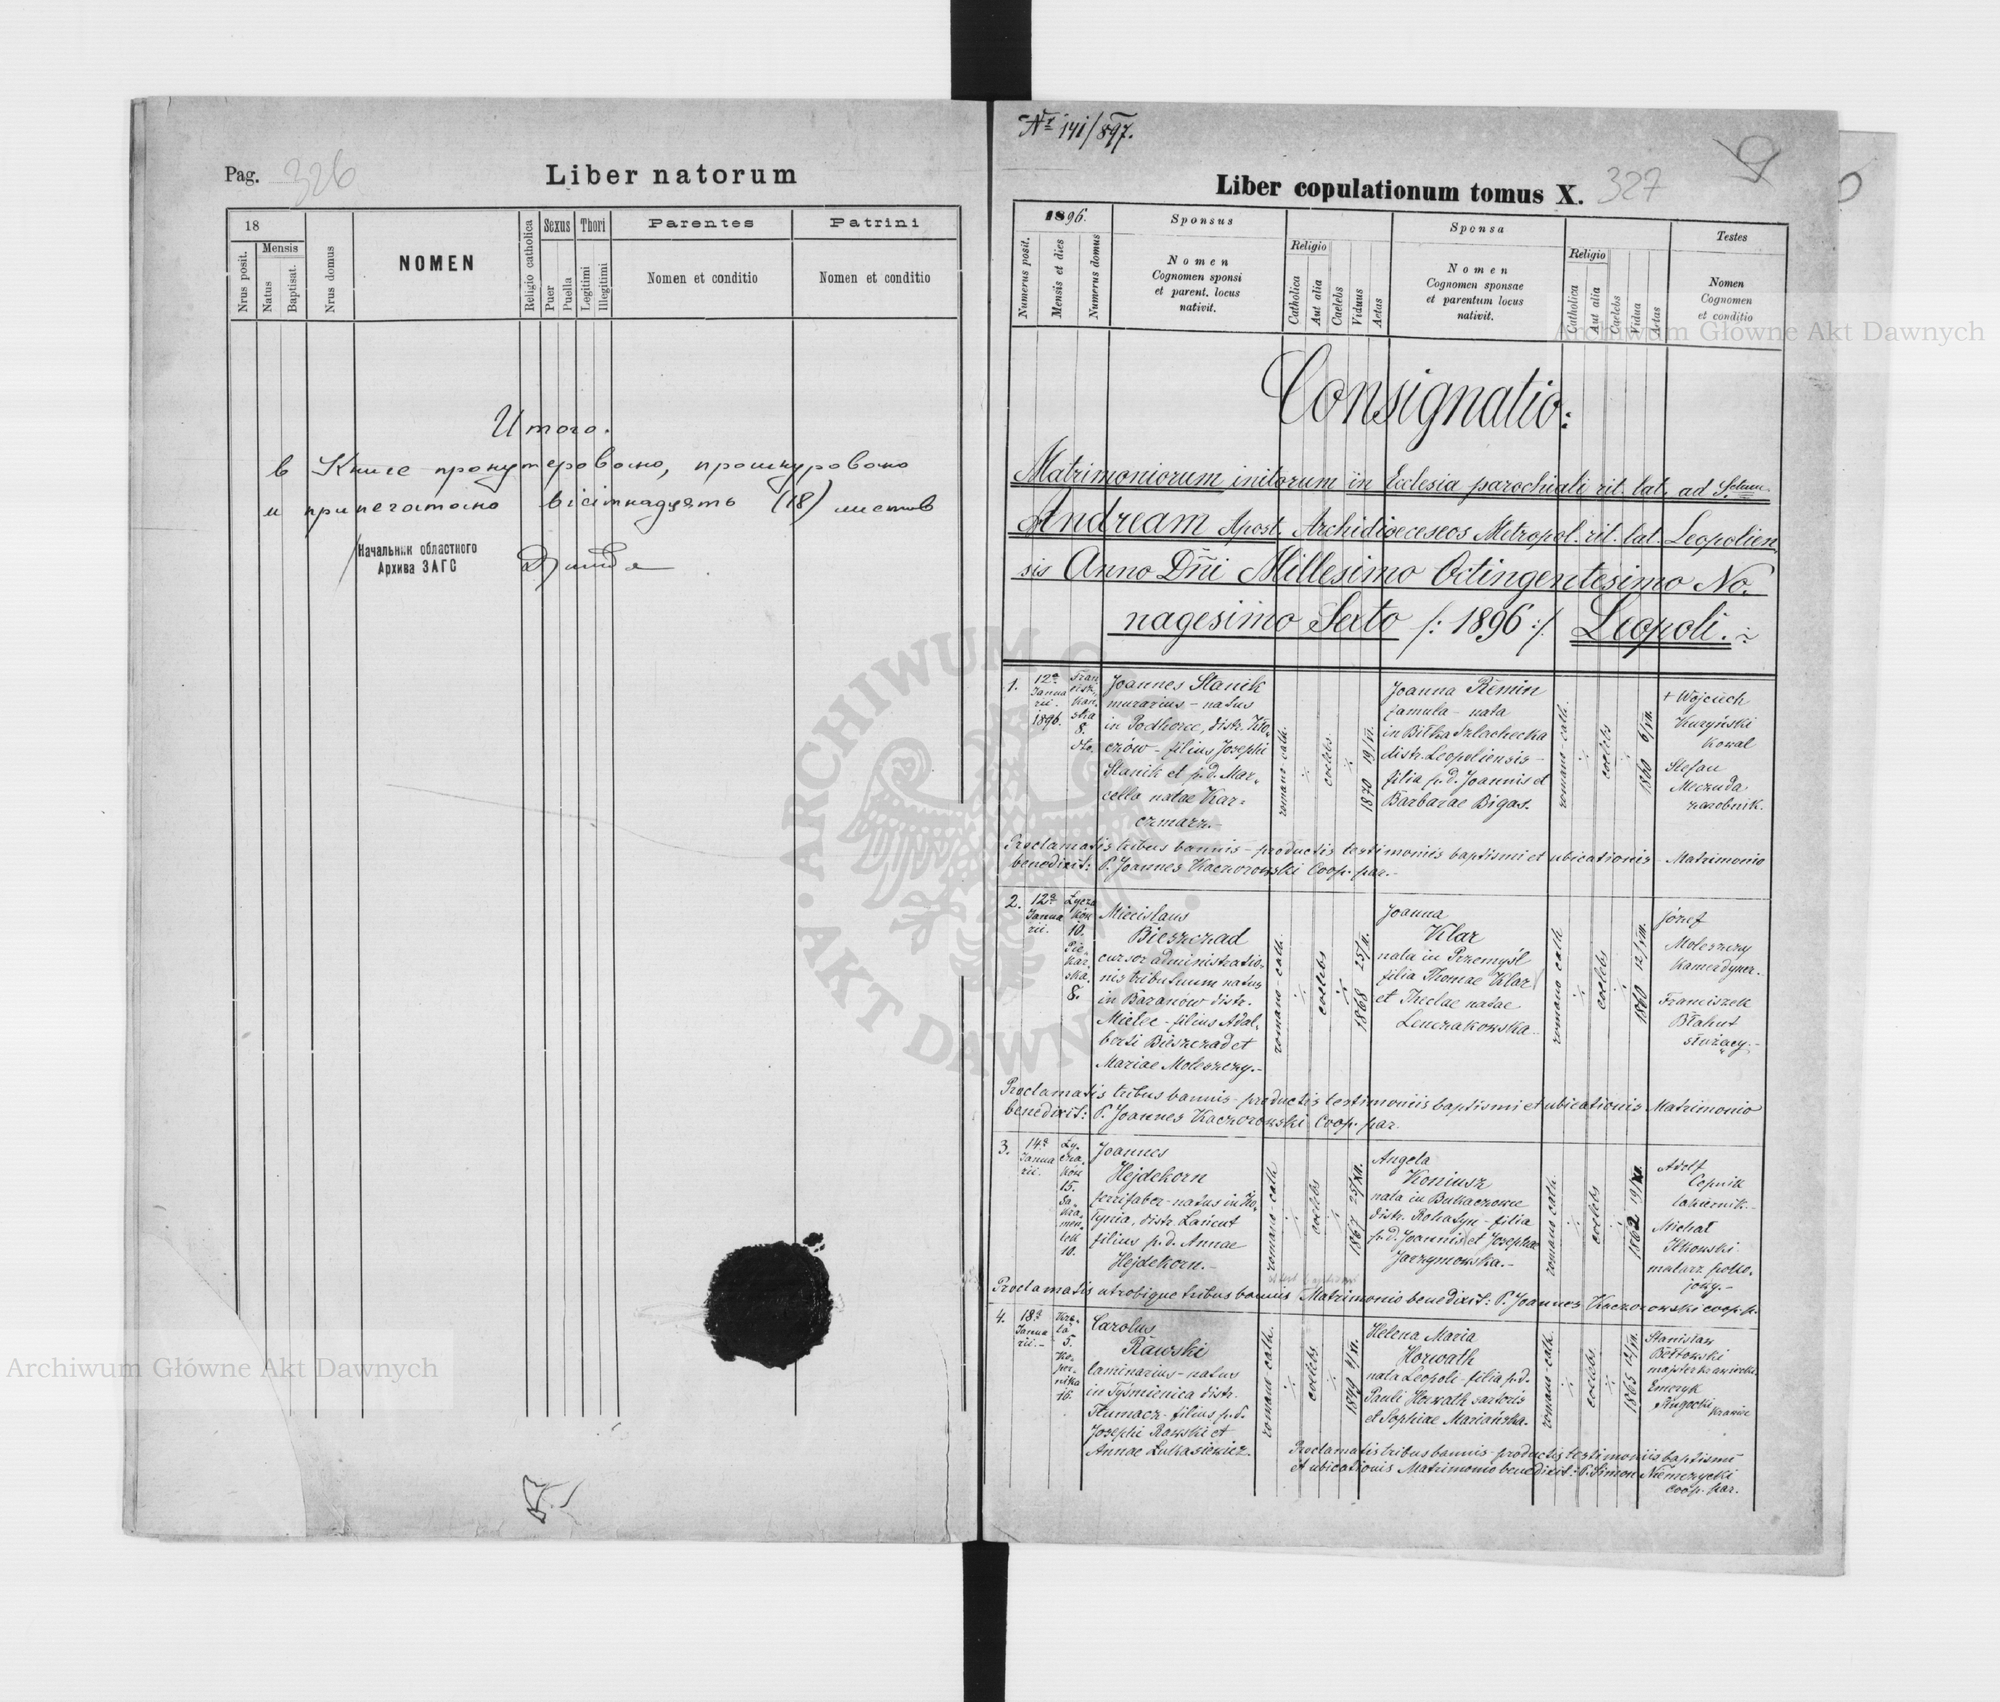 Pag. 326
Liber natorum
18
Nrus posit.
Mensis
Natus
Baptisat.
Nrus domus
NOMEN
Religio catholica
Sexus
Puer
Puella
Thori
Legitimi
Illegitimi
Parentes
Nomen et conditio
Patrini
Nomen et conditio
Итого.
в Книге пронумеровано, прошнуровано
и припечатано вісімнадцять (18) листов
Начальник областного
Архива ЗАГС
№ 141/897.
9
Liber copulationum tomus X. 327
1896.
Numerus posit.
Mensis et dies
Numerus domus
Sponsus
Nomen
Cognomen sponsi
et parent. locus
nativit.
Religio
Catholica
Aut alia
Caelebs
Viduus
Aetas
Sponsa
Nomen
Cognomen sponsae
et parentum locus
nativit.
Religio
Catholica
Aut alia
Caelebs
Vidua
Aetas
Testes
Nomen
Cognomen
et conditio
Consignatio:
Matrimoniorum initorum in Ecclesia parochiali rit. lat. ad Sctum
Andream Apost. Archidioeceseos Metropol. rit. lat. Leopolien
sis Anno Dñi Millesimo Octingentesimo No.
nagesimo Sexto /: 1896 :/ Leopoli.
1.
12a
Janua
rii.
1896.
Fran
cisz.
kań.
ska
8.
dto.
Joannes Stanik
murarius - natus
in Podhorce, distr. Zło,
czów - filius Josephi
Stanik et p.d. Mar,
cella natae Kar=
czmarz.-
romano-cath.
coelebs.
1870 19/VI.
Joanna Remin
famula - nata
in Biłka Szlachecka
distr. Leopoliensis -
filia p.d. Joannis et
Barbarae Bigas.
romano-cath.
coelebs
1860 6/VII.
+ Wojciech
Kuzyński
kowal
Stefan
Meczuda
zarobnik.
Proclamatis tribus bannis - productis testimoniis baptismi et ubicationis - Matrimonio
benedixit: P. Joannes Kaczorowski Coop. par.-
2.
12a
Janua
rii.
Łycza
ków
10.
Pie
kar
ska.
8.
Miecislaus
Bieszczad
cursor administratio,
nis tributuum natus
in Baranów distr.
Mielec - filius Adal,
berti Bieszczad et
Mariae Moleszczy.-
romano-cath.
coelebs
1868 25/II.
Joanna
Klar
nata in Przemyśl
filia Thomae Klar
et Theclae natae
Lenczakowska.
romano cath
coelebs
1860 12/VIII.
józef
Moleszczy
kamerdyner.
Franciszek
Błahut
służący.-
Proclamatis tribus bannis - productis testimoniis baptismi et ubicationis Matrimonio
benedixit: P. Joannes Kaczorowski Coop. par.
3.
14a
Janua
rii.
Ły.
cza.
ków
15.
Sa.
kra.
men.
tek
10.
Joannes
Hejdekorn
ferrifaber - natus in Ho,
łynia, distr. Łańcut
filius p.d. Annae
Hejdekorn.-
romano-cath
coelebs
1867 25/XII.
Angela
Koniusz
nata in Bukaczowce
distr. Rohatyn - filia
p.d. Joannis et Josephae
Jaczymowska.-
romano cath.
coelebs
1862
Adolf
Cepnik
lakiernik.-
Michał
Ilkowski
malarz poko,
jowy.-
Proclamatis utrobique tribus bannis Matrimonio benedixit: P. Joannes Kaczorowski coop. p.
4.
18a
Janua
rii.-
5.
Ko.
per.
nika
16.
Carolus
Rawski
laminarius - natus
in Tyśmienica distr.
Tłumacz - filius p.d.
Josephi Rawski et
Annae Łukasiewicz.
romano-cath.
coelebs
1849 4/XI.
Helena Maria
Horwath
nata Leopoli - filia p.d.
Pauli Horwath sartoris
et Sophiae Mariańska.
romano-cath.
coelebs.
1865 12/VII.
Stanisław
Bełtowski
majster krawiecki
Emeryk
Długocki krawiec
Proclamatis tribus bannis - productis testimoniis baptismi
et ubicationis Matrimonio benedixit: P. Simon Niemczycki
coop. par.
Archiwum Główne Akt Dawnych
Archiwum Główne Akt Dawnych
ARCHIWUM
AKT DAWNYCH